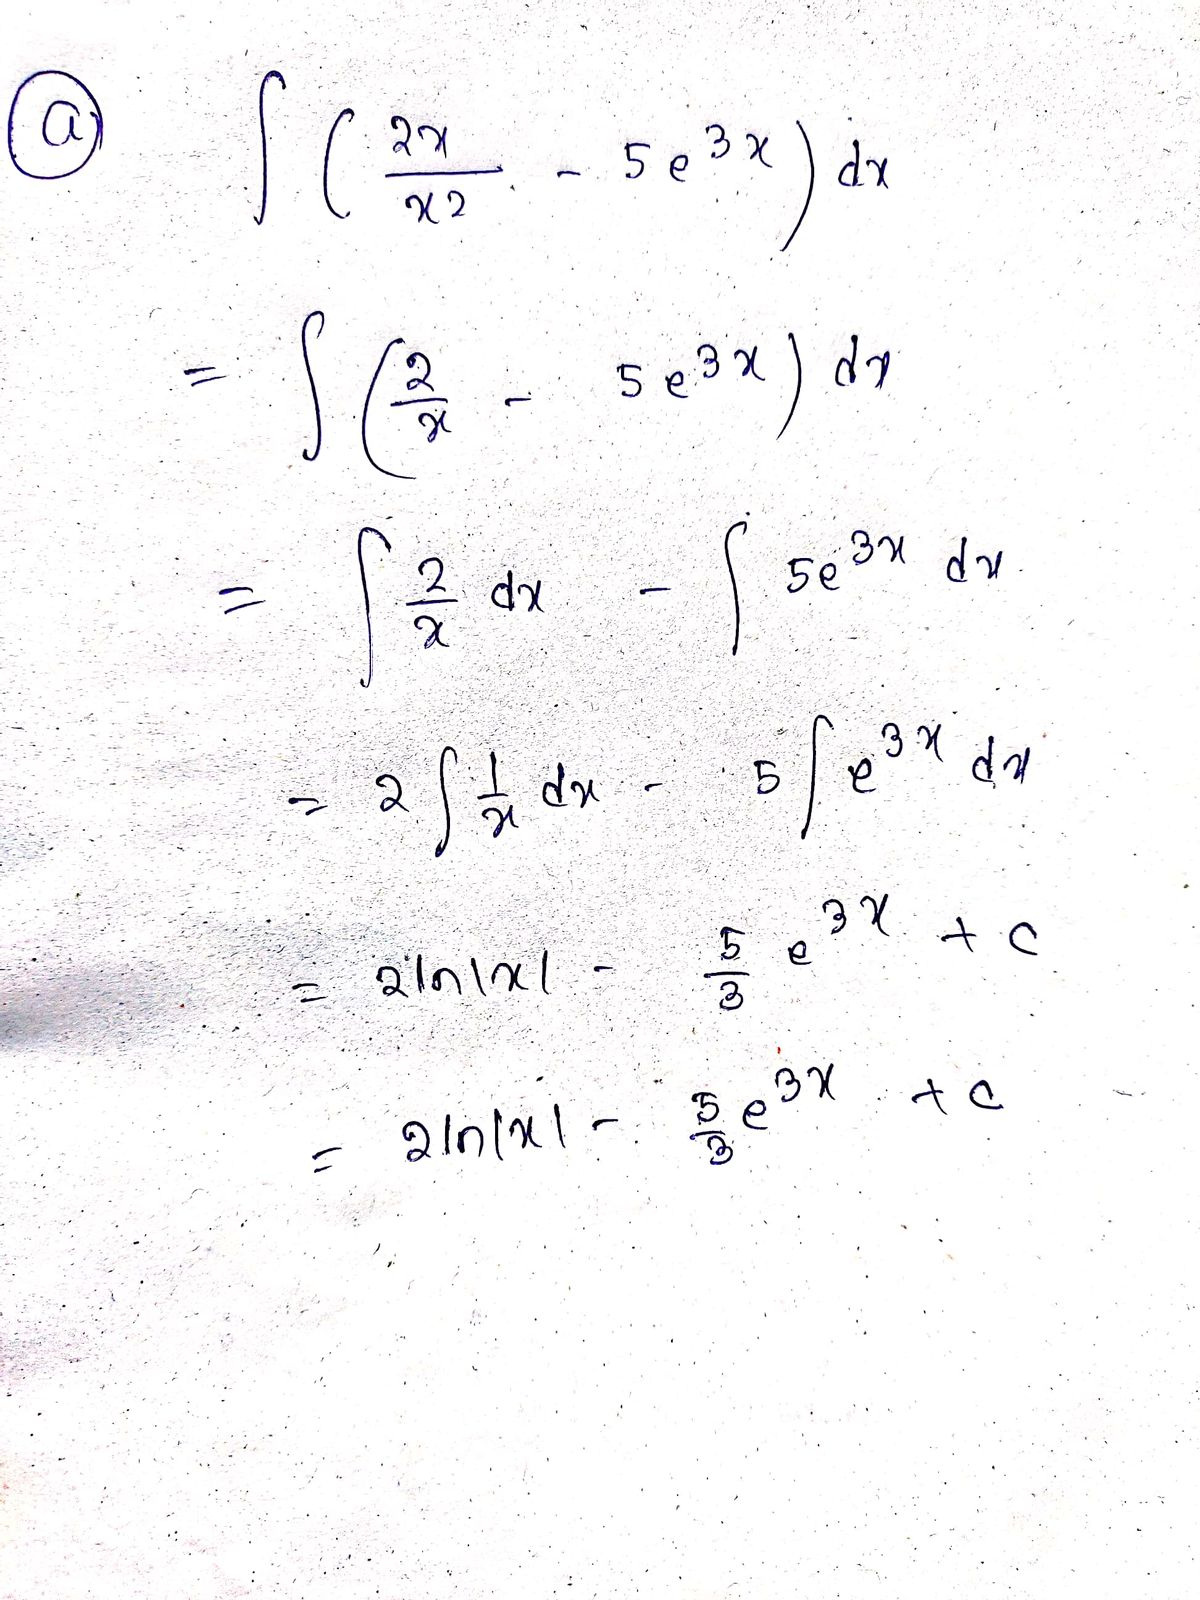 a) ∫ ( 2x / x2 - 5e^3x ) dx
= ∫ ( 2/x - 5e^3x ) dx
= ∫ 2/x dx - ∫ 5e^3x dx
= 2 ∫ 1/x dx - 5 ∫ e^3x dx
= 2ln|x| - 5/3 e^3x + c
= 2ln|x| - 5/3 e^3x + c